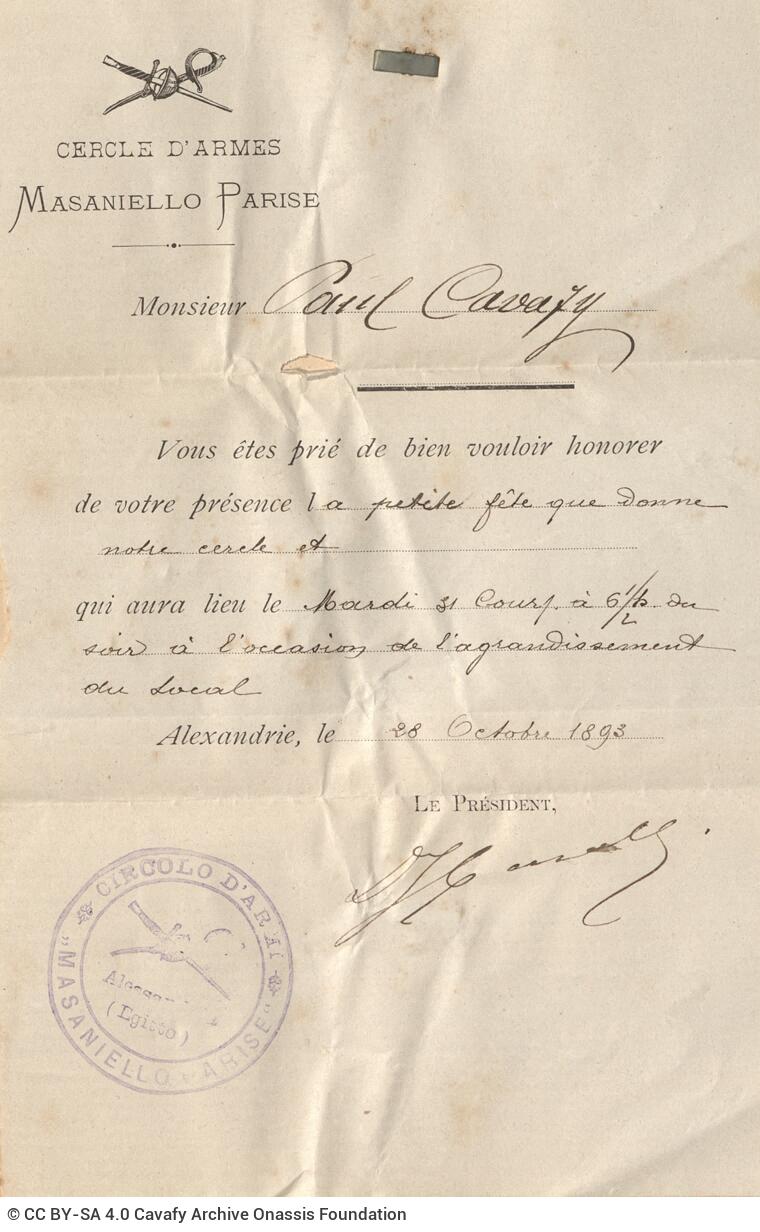 CERCLE D'ARMES
MASANIELLO PARISE
Monsieur Paul Cavafy
Vous êtes prié de bien vouloir honorer
de votre présence la petite fête que donne
notre cercle et
qui aura lieu le Mardi 31 Cour. à 6 1/2 h. du
soir à l'occasion de l'agrandissement
du Local
Alexandrie, le 28 Octobre 1893
LE PRÉSIDENT,
CIRCOLO D'ARMI
(Egitto)
"MASANIELLO PARISE"
© CC BY-SA 4.0 Cavafy Archive Onassis Foundation